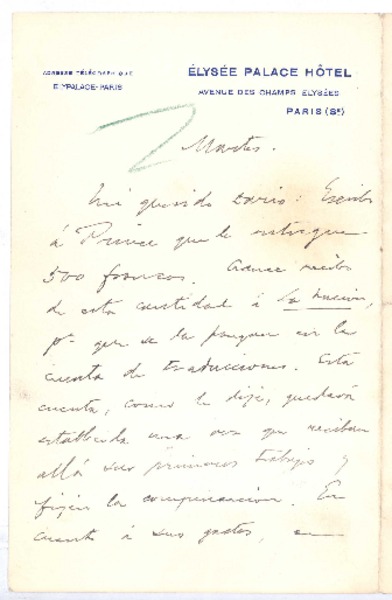 ADRESSE TÉLÉGRAPHIQUE
ELYPALACE-PARIS
ÉLYSÉE PALACE HÔTEL
AVENUE DES CHAMPS ELYSÉES
PARIS (8e)
Martes.
Mi querido Darío: Escribo
á Prince que le entregue
500 francos. recibo
de esta cantidad á La Nación,
pa que se la paguen en la
cuenta de traducciones. Esta
cuenta, como le dije, quedará
establecida una vez que reciban
allá sus primeros trabajos y
fijen la compensación. En
cuanto á sus gastos,